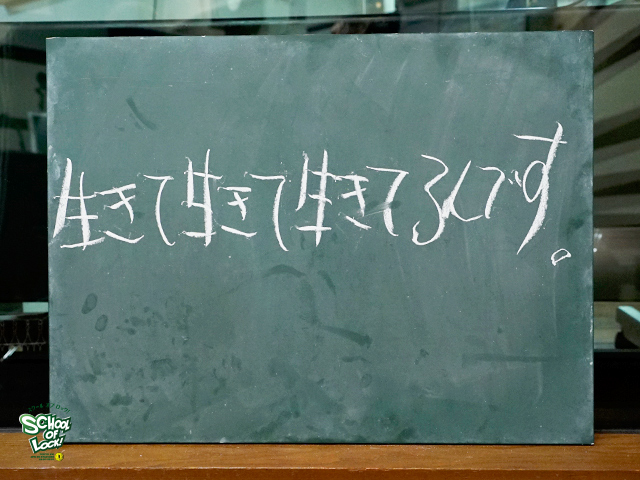 生きて生きて生きてるんです。
SCHOOL
OF
LOCK!